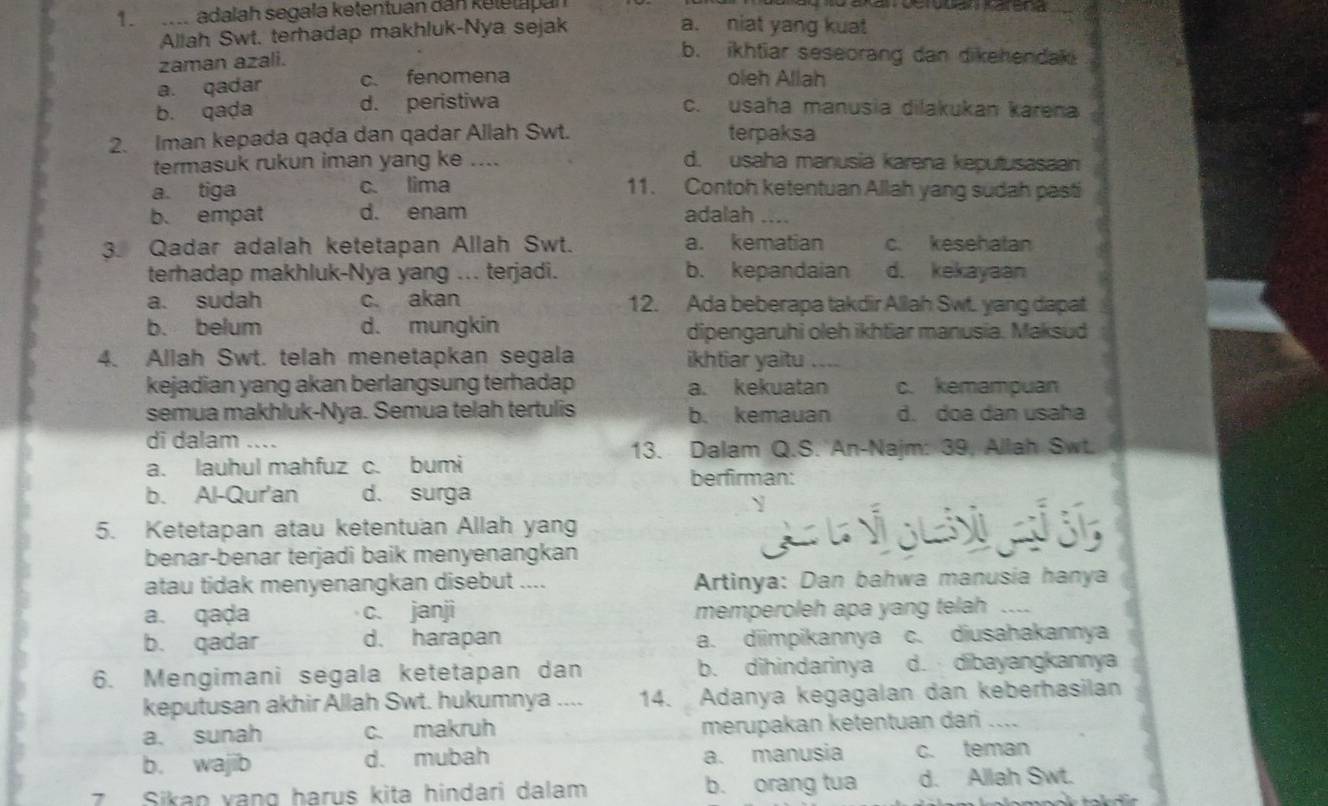 1. .... adalah segala ketentuan dan ketetapan
Allah Swt. terhadap makhluk-Nya sejak
zaman azali.
a. qadar c. fenomena
b. qaḍa d. peristiwa
2. Iman kepada qaḍa dan qadar Allah Swt.
termasuk rukun iman yang ke ....
a. tiga c. lima
b. empat d. enam
3. Qadar adalah ketetapan Allah Swt.
terhadap makhluk-Nya yang ... terjadi.
a. sudah c. akan
b. belum d. mungkin
4. Allah Swt. telah menetapkan segala
kejadian yang akan berlangsung terhadap
semua makhluk-Nya. Semua telah tertulis
di dalam ....
a. lauhul mahfuz c. bumi
b. Al-Qur'an d. surga
5. Ketetapan atau ketentuan Allah yang
benar-benar terjadi baik menyenangkan
atau tidak menyenangkan disebut ....
a. qaḍa c. janji
b. qadar d. harapan
6. Mengimani segala ketetapan dan
keputusan akhir Allah Swt. hukumnya ....
a. sunah c. makruh
b. wajib d. mubah
7. Sikap yang harus kita hindari dalam
akan berubah karena ....
a. niat yang kuat
b. ikhtiar seseorang dan dikehendaki
oleh Allah
c. usaha manusia dilakukan karena
terpaksa
d. usaha manusia karena keputusasaan
11. Contoh ketentuan Allah yang sudah pasti
adalah ....
a. kematian c. kesehatan
b. kepandaian d. kekayaan
12. Ada beberapa takdir Allah Swt. yang dapat
dipengaruhi oleh ikhtiar manusia. Maksud
ikhtiar yaitu ....
a. kekuatan c. kemampuan
b. kemauan d. doa dan usaha
13. Dalam Q.S. An-Najm: 39, Allah Swt.
berfirman:
وَأَنْ لَيْسَ لِلْإِنْسَانِ إِلَّا مَا سَعَىٰ
Artinya: Dan bahwa manusia hanya
memperoleh apa yang telah ....
a. diimpikannya c. diusahakannya
b. dihindarinya d. dibayangkannya
14. Adanya kegagalan dan keberhasilan
merupakan ketentuan dari ....
a. manusia c. teman
b. orang tua d. Allah Swt.